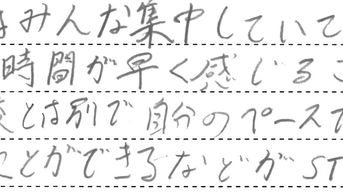 みんな集中していて
時間が早く感じるこ
とは別で自分のペースで
ことができるなどがST